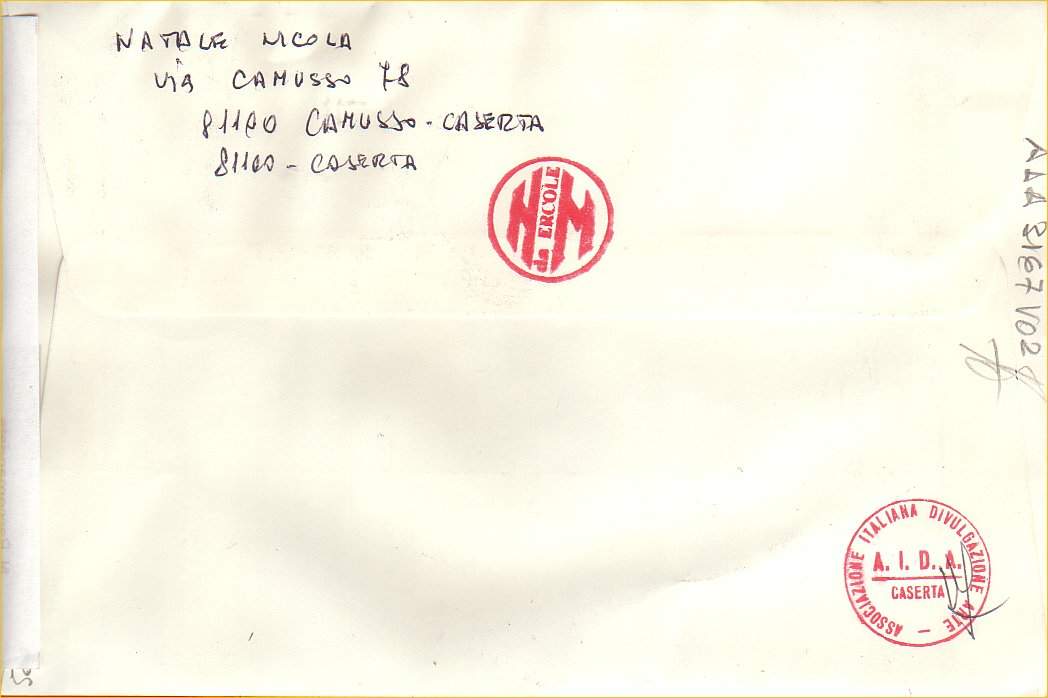 NATALE NICOLA
VIA CAMUSSO 78
81100 CAMUSSO - CASERTA
81100 - CASERTA
NM
da ERCOLE
ASSOCIAZIONE ITALIANA DIVULGAZIONE ARTE -
A. I. D. A.
CASERTA